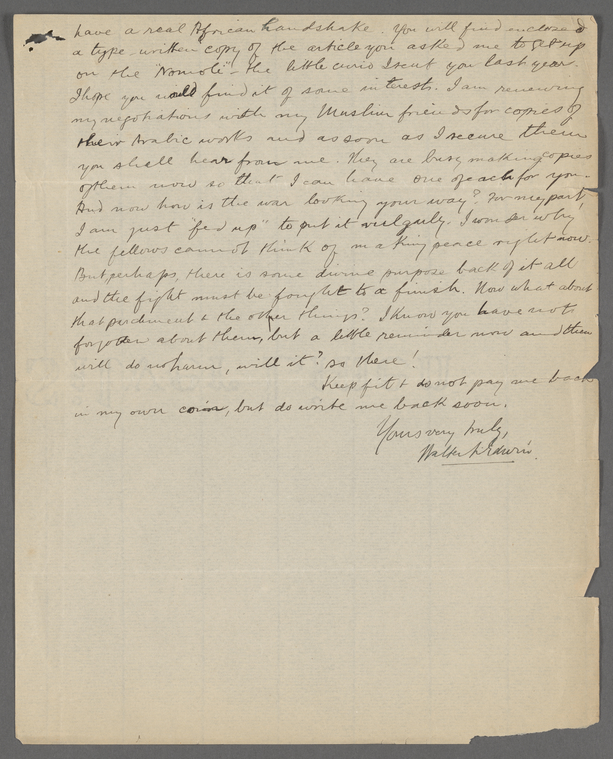 have a real African handshake. You will find enclosed
a type-written copy of the article you asked me to get up
on the "Nomoli" - the little curio I sent you last year.
I hope you would find it of some interest. I am renewing
my negotiations with my Muslim friends for copies of
their Arabic works and as soon as I secure them
you shall hear from me. They are busy making copies
of them now so that I can have one of each for you.
And now how is the war looking your way? For my part,
I am just "fed up" to put it vulgarly. I wonder why
the fellows cannot think of making peace right now.
But perhaps, there is some divine purpose back of it all
and the fight must be fought to a finish. Now what about
that parchment & the other things? I know you have not
forgotten about them, but a little reminder now and then
will do no harm, will it? So there!
Keep fit & do not pay me back
in my own coin, but do write me back soon.
Yours very truly,
Walter